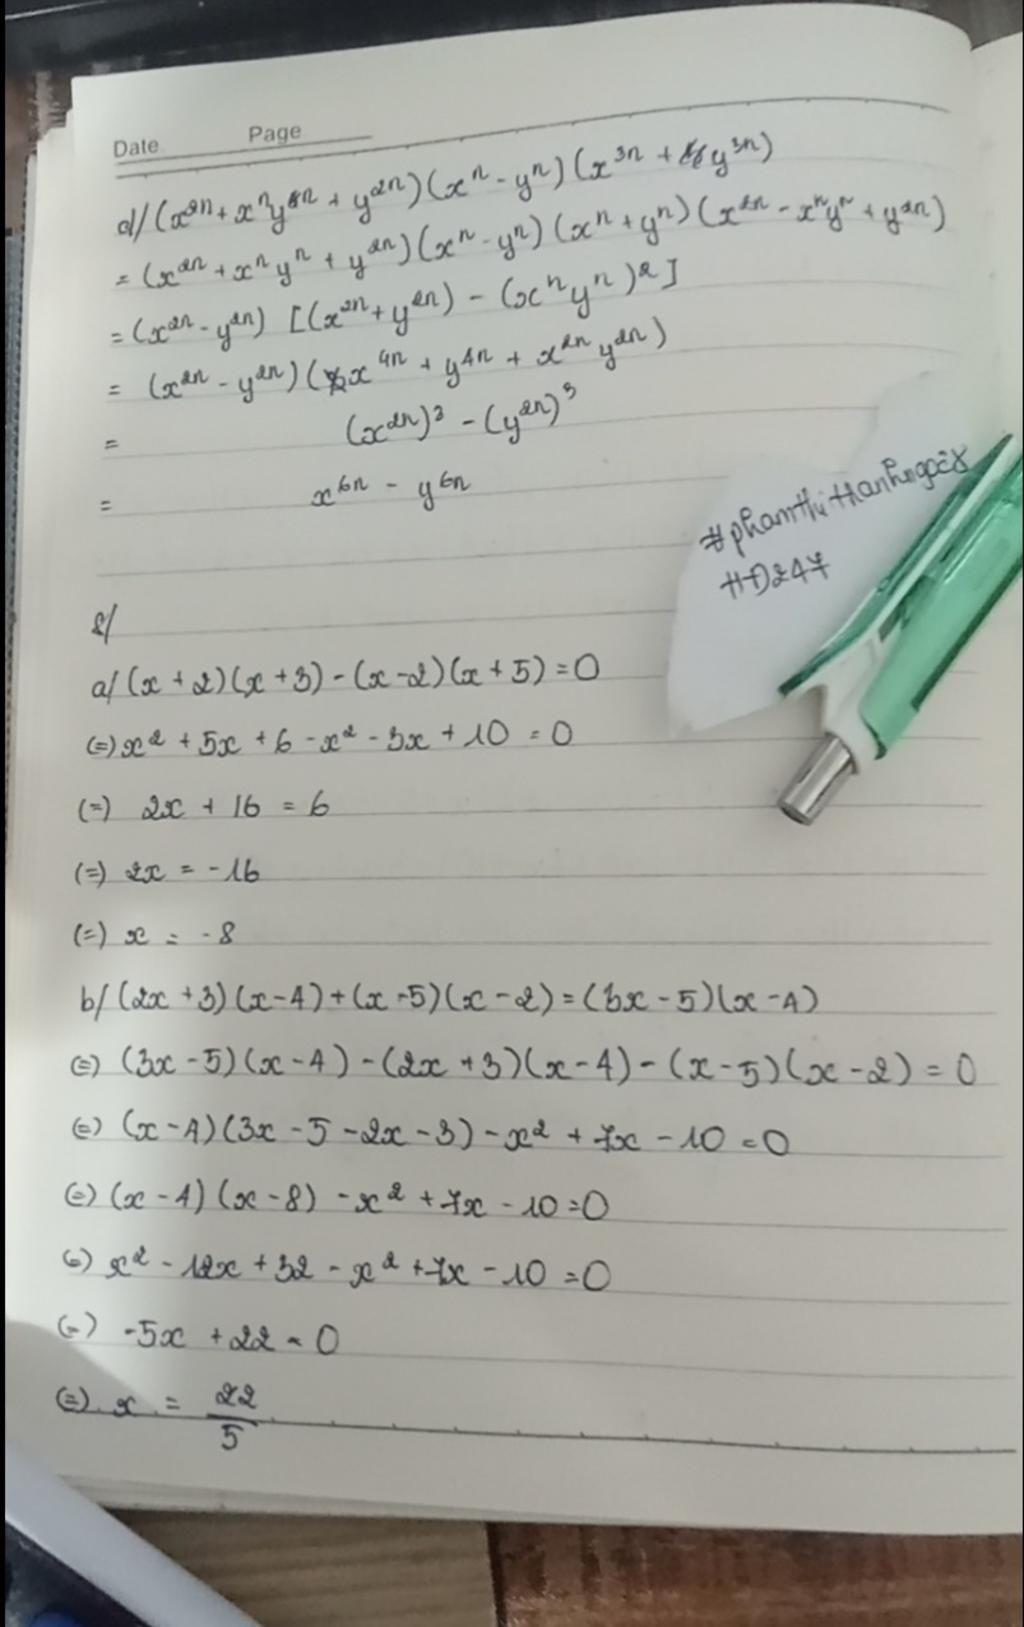 Date Page
d/ (x²ⁿ + xⁿyⁿ + y²ⁿ)(xⁿ - yⁿ)(x³ⁿ + y³ⁿ)
= (x²ⁿ + xⁿyⁿ + y²ⁿ)(xⁿ - yⁿ)(xⁿ + yⁿ)(x²ⁿ - xⁿyⁿ + y²ⁿ)
= (x²ⁿ - y²ⁿ) [(x²ⁿ + y²ⁿ) - (xⁿyⁿ)²]
= (x²ⁿ - y²ⁿ)(x⁴ⁿ + y⁴ⁿ + x²ⁿy²ⁿ)
= (x²ⁿ)³ - (y²ⁿ)³
= x⁶ⁿ - y⁶ⁿ
#phamthithanhngoc8
HĐ247
8/
a/ (x + 2)(x + 3) - (x - 2)(x + 5) = 0
(=) x² + 5x + 6 - x² - 3x + 10 = 0
(=) 2x + 16 = 6
(=) 2x = -16
(=) x = -8
b/ (2x + 3)(x - 4) + (x - 5)(x - 2) = (3x - 5)(x - 4)
(=) (3x - 5)(x - 4) - (2x + 3)(x - 4) - (x - 5)(x - 2) = 0
(=) (x - 4)(3x - 5 - 2x - 3) - x² + 7x - 10 = 0
(=) (x - 4)(x - 8) - x² + 7x - 10 = 0
(=) x² - 12x + 32 - x² + 7x - 10 = 0
(=) -5x + 22 = 0
(=) x = 22/5